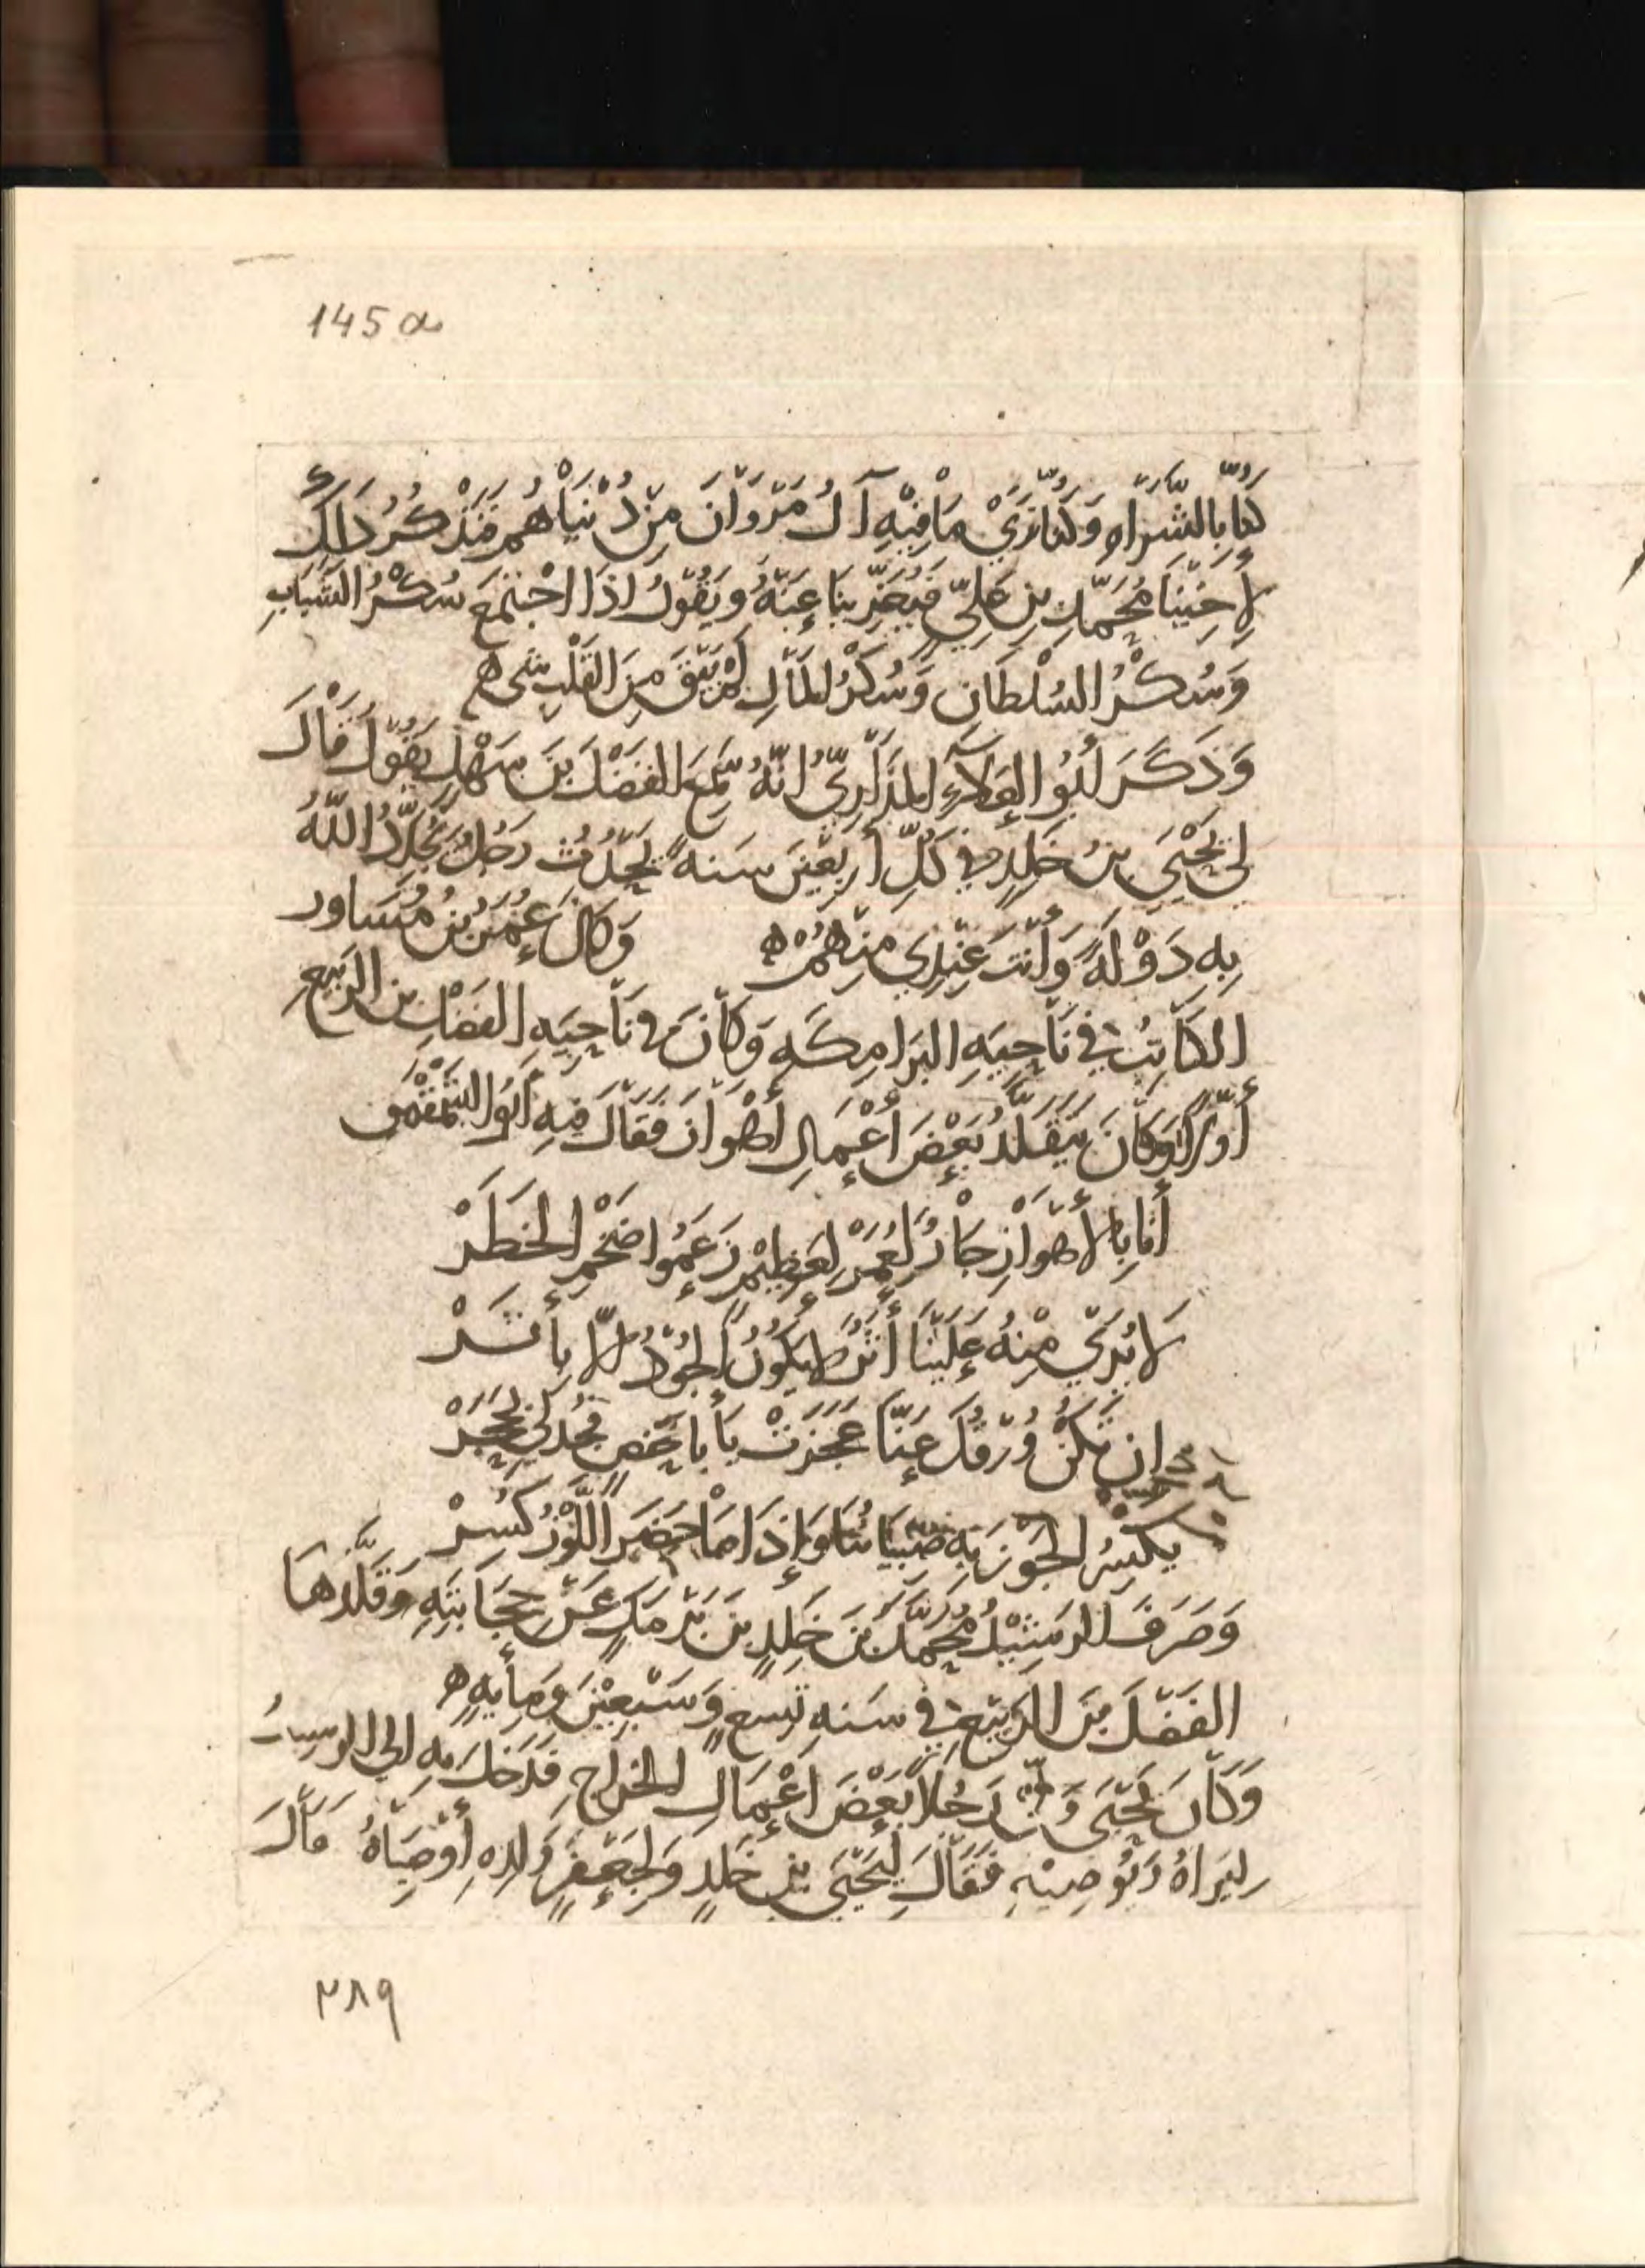 145 a
كُنّا بِالشَّرَاهِ وَكُنّا نَرَيْ مَا فِيْهِ آلُ مَرْوَانَ مِنْ دُنْيَاهُم فَنَذْكُرُ ذَلِكَ
لِأَخِيْنَا مُحَمَّدِ بنِ عَلِيٍّ فَيُعَزِّينَا عَنْهُ وَيَقُوْلُ اذَا اجْتَمَعَ سُكْرُ الشَّبَابِ
وَسُكْرُ السُلْطَانِ وَسُكْرُ المَالِ لَمْ يَبْقَ مِنَ القَلْبِ شي ه
وَذَكَرَ أَبُو العَلآءِ المَذَارِيُّ انَّهُ سَمِعَ الفَضْلَ بنَ سَهْلٍ يَقُوْلُ قَالَ
لي يَحْيَيَ بنُ خَلِدٍ في كُلِّ أَرْبَعِيْنَ سَنه يَحْدُثُ رَجُلٌ يُجَدِّدُ اللَّهُ
بِهِ دَوْلَةً وَأَنْتَ عِنْدِي مِنْهُمْ ه وَكَانَ عُمَرُ بْنُ مُسَاور
الكَاتِبُ في نَاحِيَهِ البَرَامِكَه وَكَانَ في نَاحِيَهِ الفَضْلِ بن الرَبِيعِ
أَوَّلاً وَكَانَ يَتَقَلَّدُ بَعْضَ أَعْمَالِ أَهْوَازَ فَقَالَ فِيهِ أَبُو الشَّمَقْمَقِ
أَنَا بِالأَهْوَازِ جَارٌ لِعُمَرْ لِعَظِيْمٍ زَعَمُوا ضَخْمِ الخَطَرْ
لَا يُرَيْ مِنْهُ عَلَيْنَا أَثَرٌ لا يَكُونُ الجُوْدُ إلّا بِأَثَرْ
إِن تَكُنْ وُرْقُكَ عَنَّا عَجَزَتْ يَا أَبَا حَفصٍ فَجُدْ لي بِحَجَرْ
يَكْسِرُ الجَوْزَ بِهِ صِبْيَانُنَا وَإِذَا مَا حَضَرَ اللَّوْزُ كَسَرْ
وَصَرَفَ الرَشِيْدُ مُحَمَّدَ بْنَ خَلِدٍ بنَ بَرْمَكٍ عَنْ حِجَابَتِهِ وَقَلَّدَهَا
الفَضْلَ بْنَ الرَبِيْعِ في سَنهِ تِسعٍ وَسَبْعِيْنَ وَمِأيَهٍ ه
وَكَانَ يَحْيَى وَلَّى رَجُلاً بَعْضَ أَعْمَالِ الخَرَاجِ فَدَخَلَ بِهِ الي الرسيدُ
لِيَرَاهُ وَيُوْصِيْهِ فَقَالَ لِيَحْيَى بنِ خَلِدٍ وَلِجَعْفَرٍ وَلَدِهِ أَوْصِيَاهُ فَقَالَ
٢٨٩